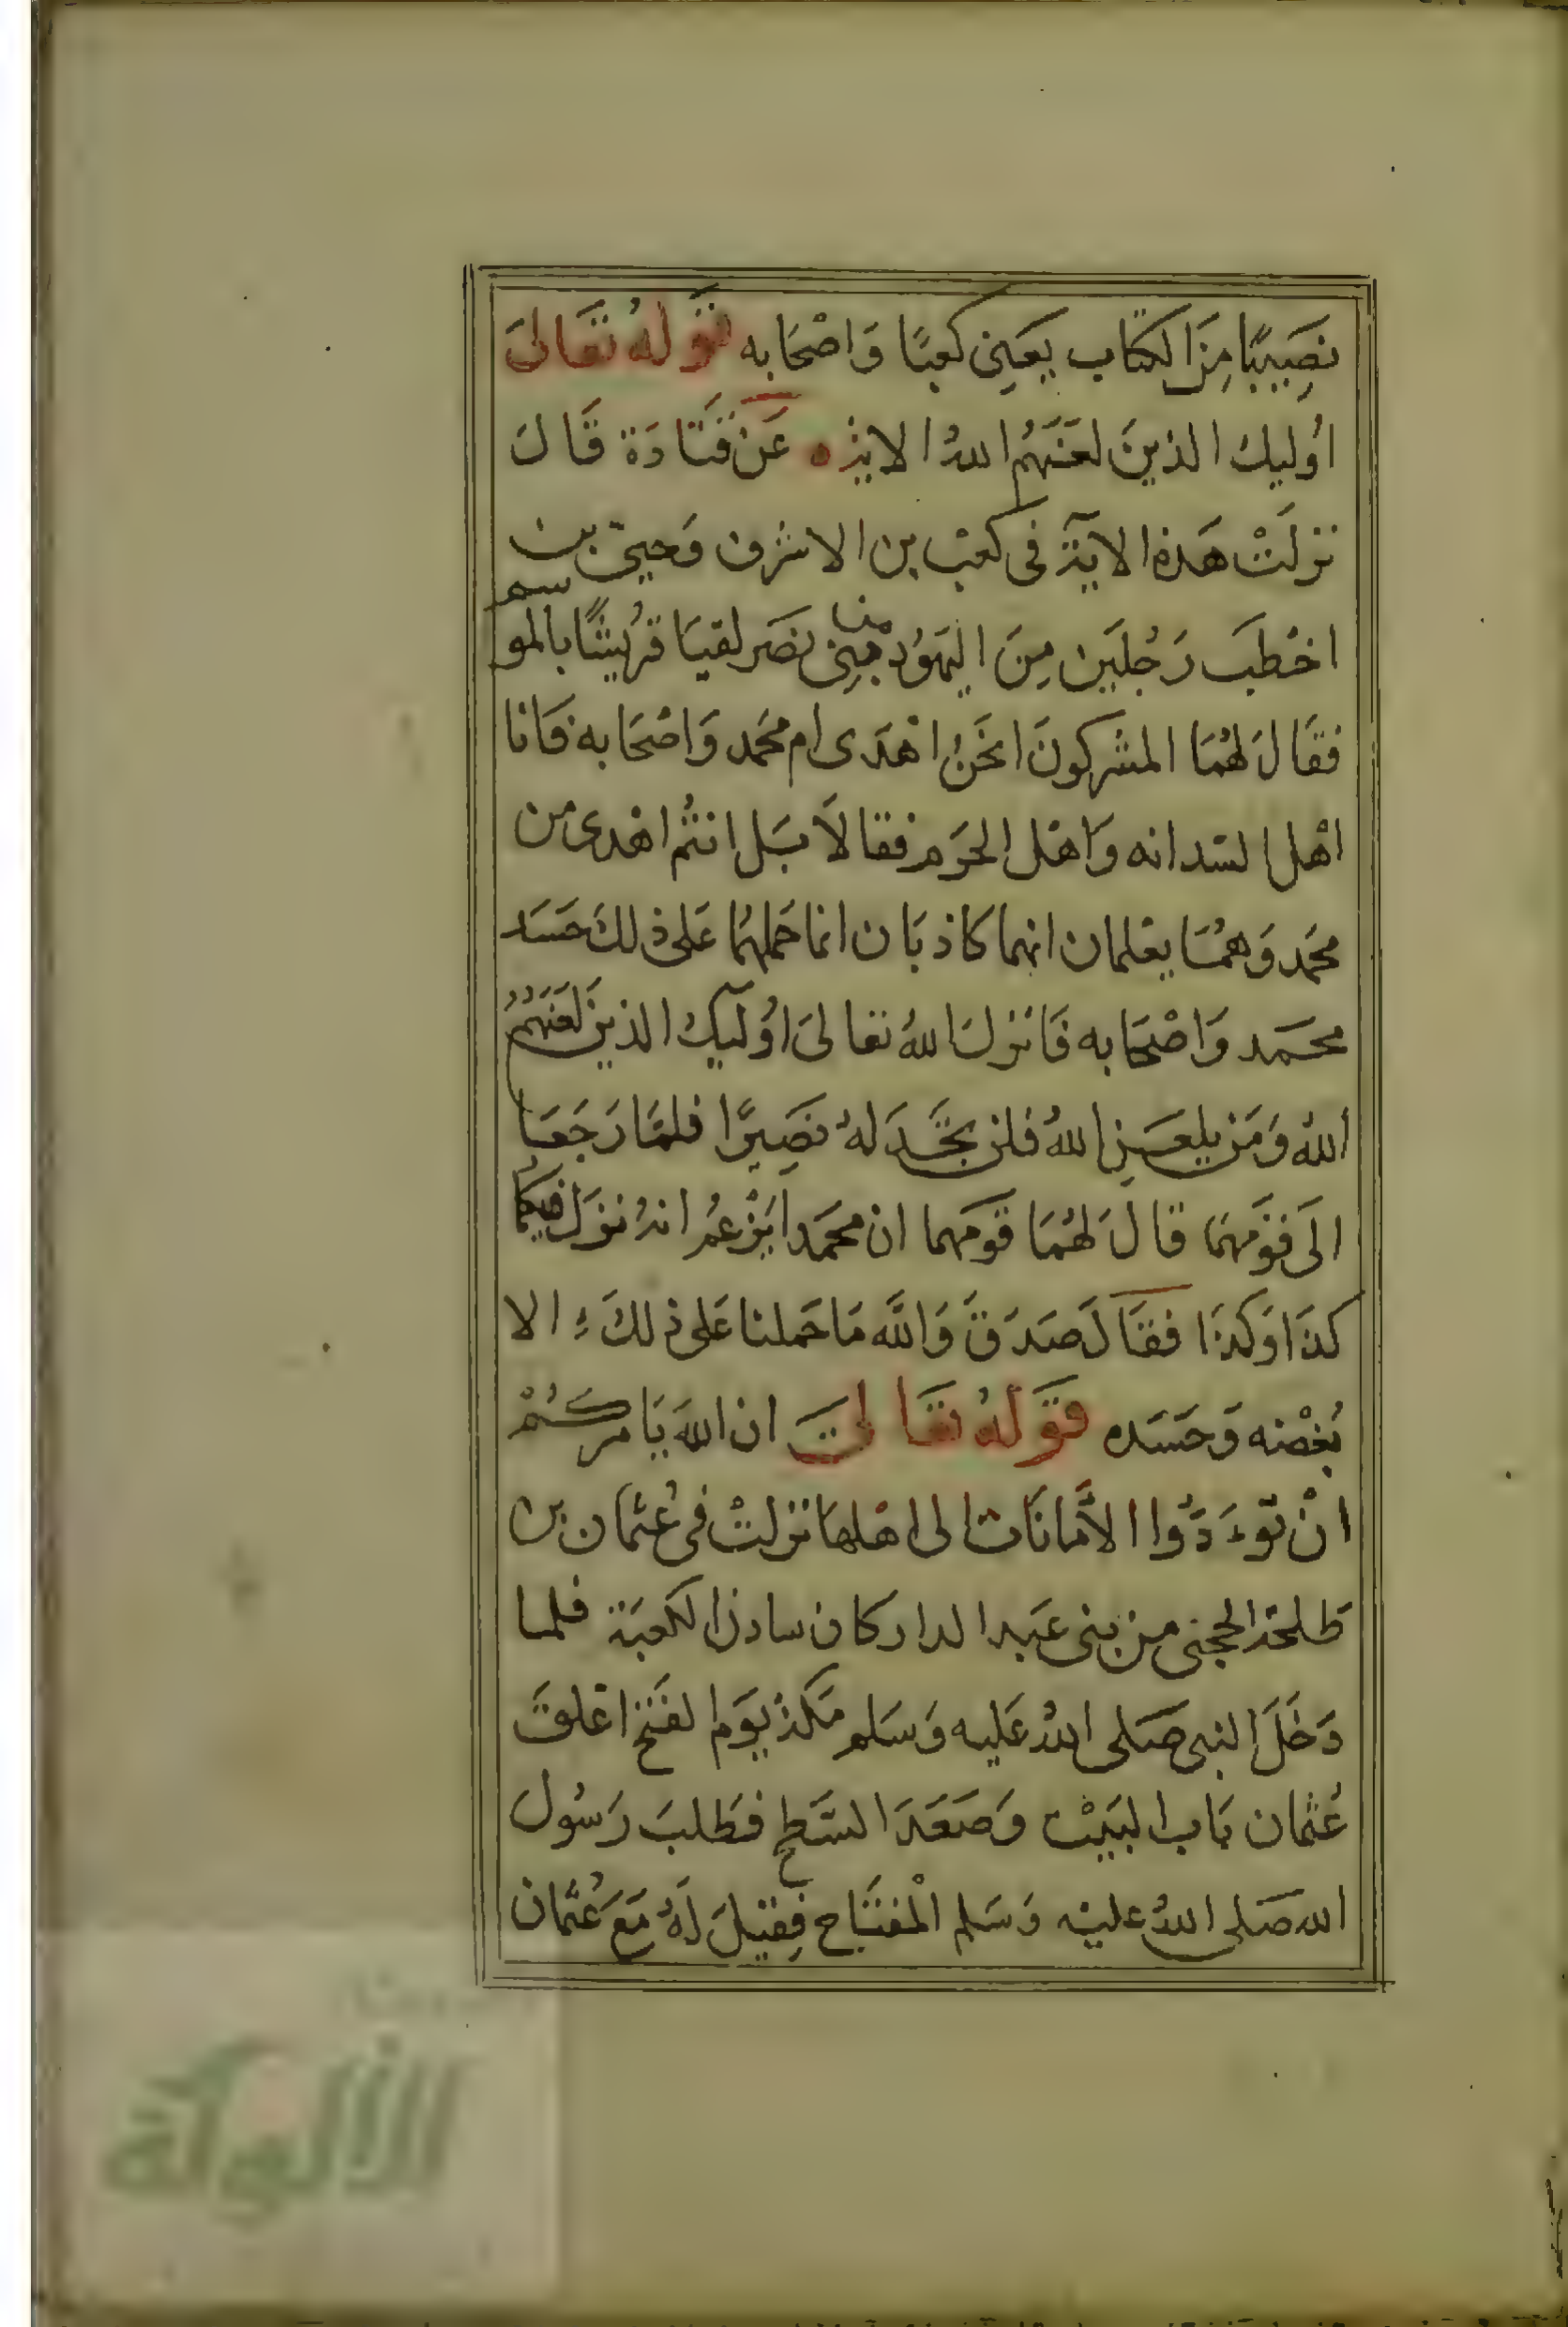 نَصِيبًا مِنَ الكتاب يَعني كعبًا وَاصْحَابه قَولهُ تعَالىَ
اوُليك الذينَ لعَنَهُم اللهُ الاية ه عَن قَتَادَة قَالَ
نزلَتْ هَذه الايَة فى كعبْ بن الاشرف وَحيىّ بن
اخْطبَ رَجُلَين مِنَ اليَهوُد من بنى نضَر لقيَا قرُيشًا بالموسم
فقَالَ لهُمَا المشركونَ انحَنُ اهْدَى ام محَمد وَاصْحَابه فَانا
اهْل السدانه وَاهْل الحَرَم فقالاَ بَل انتُم اهْدى من
محَمد وَهمُا يعْلمان انهما كاذبَان انما حَملهُمَا عَلى ذلكَ حَسَد
محَمد وَاصْحَابه فَانزلَ اللهُ تعالىَ اوُليكُ الذينَ لعَنَهُمُ
اللهُ وَمَن يلعَنِ اللهُ فلن تجَدَ لهُ نصَيرًا فلمَا رَجَعَا
الَى قَوْمهِمَا قالَ لهُمَا قَومَهما ان محَمدا يَزْعُمُ انهُ نزَلَ فيكُما
كذَا وَكذَا فقَالَ صَدَقَ وَاللَّه مَا حَملنا عَلى ذلكَ الا
بُغْضه وَحَسَده قَولهُ تعَالىَ ان اللهَ يَامركُمْ
انْ تؤدُّوا الأمَانَات الى اهْلهَا نزلتْ فى عُثمان بن
طلحَة الحجبى من بنى عَبد الدار كان سادن الكعبَة فلما
دَخَلَ النبى صَلى اللهُ عَليه وَسَلم مَكة يَوم الفَتح اغلقَ
عُثمان بَاب البَيْت وَصَعَدَ السَّطح فطَلبَ رَسُولَ
الله صَلى اللهُ عليْه وَسَلم الْمفتَاح فِقيلَ لَهُ مَعَ عُثمان
الألوكة